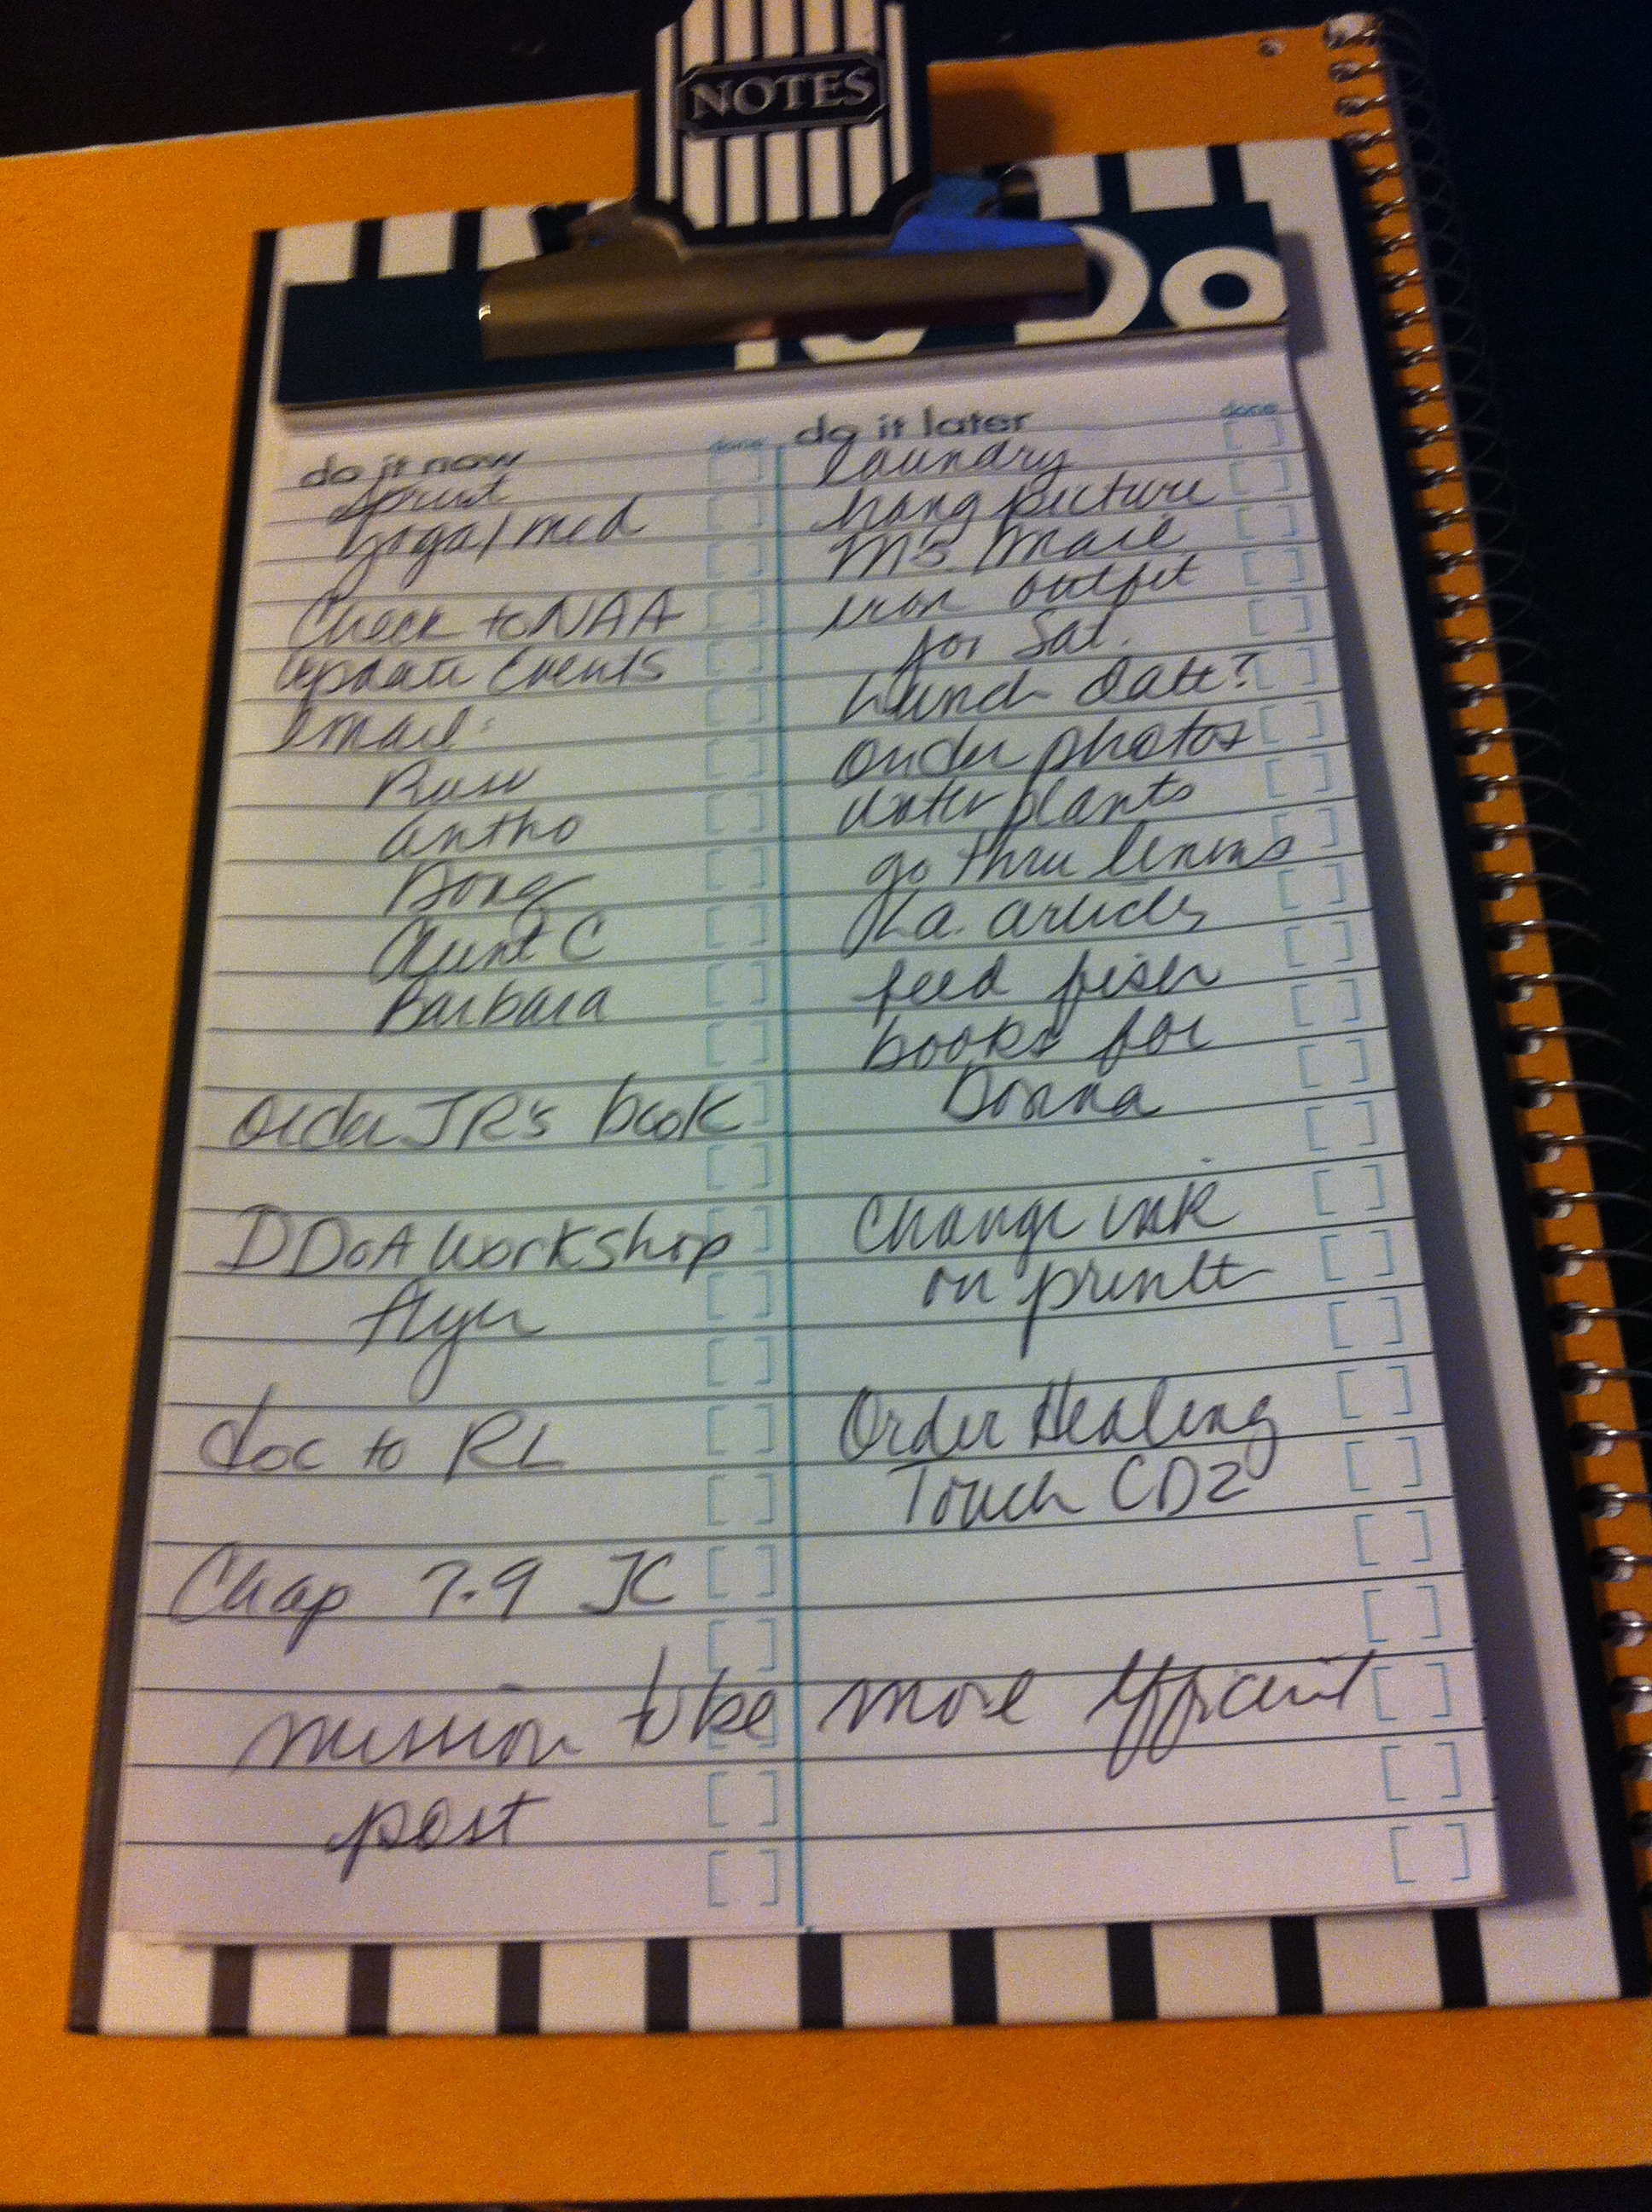 NOTES
To Do
do it now done
Sprint
yoga/med
Check to NAA
Update Events
email:
Russ
Antho
Doug
Aunt C
Barbara
Order JR's book
DDoA Workshop
flyer
doc to RL
Chap 7-9 JC
do it later done
laundry
hang picture
M's. mail
iron outfit
for Sat.
lunch date?
order photos
water plants
go thru linens
La. articles
feed fiser
books for
Donna
Change ink
on printer
Order Healing
Touch CD2
mission to be more efficient
post